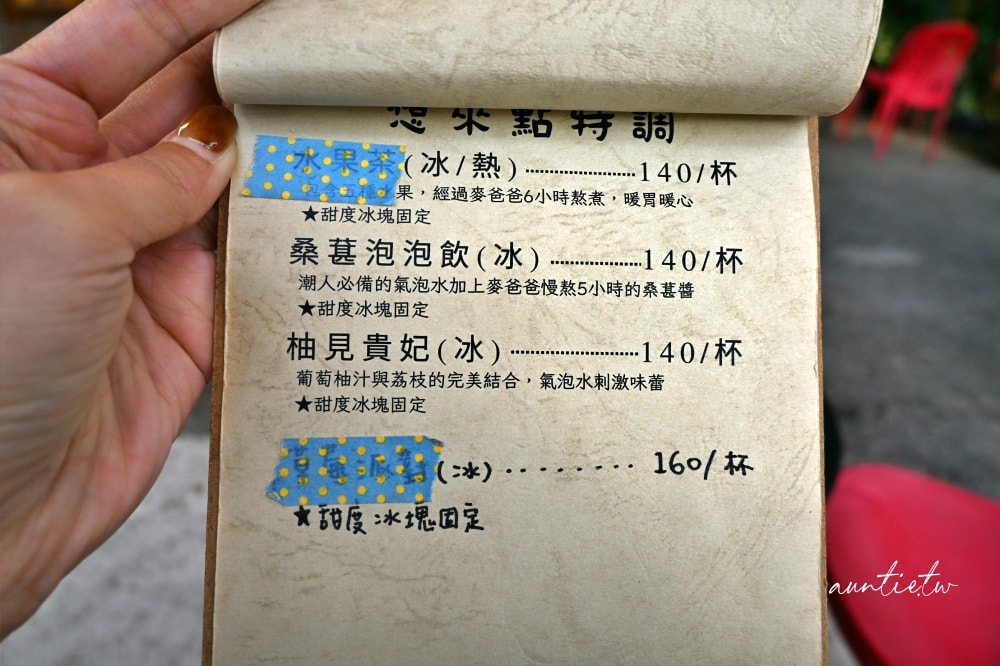 想來點特調
水果茶(冰/熱)..................140/杯
包含五種水果，經過麥爸爸6小時熬煮，暖胃暖心
★甜度冰塊固定
桑葚泡泡飲(冰)..................140/杯
潮人必備的氣泡水加上麥爸爸慢熬5小時的桑葚醬
★甜度冰塊固定
柚見貴妃(冰)..................140/杯
葡萄柚汁與荔枝的完美結合，氣泡水刺激味蕾
★甜度冰塊固定
草莓派對(冰)........160/杯
★甜度冰塊固定
auntie.tw